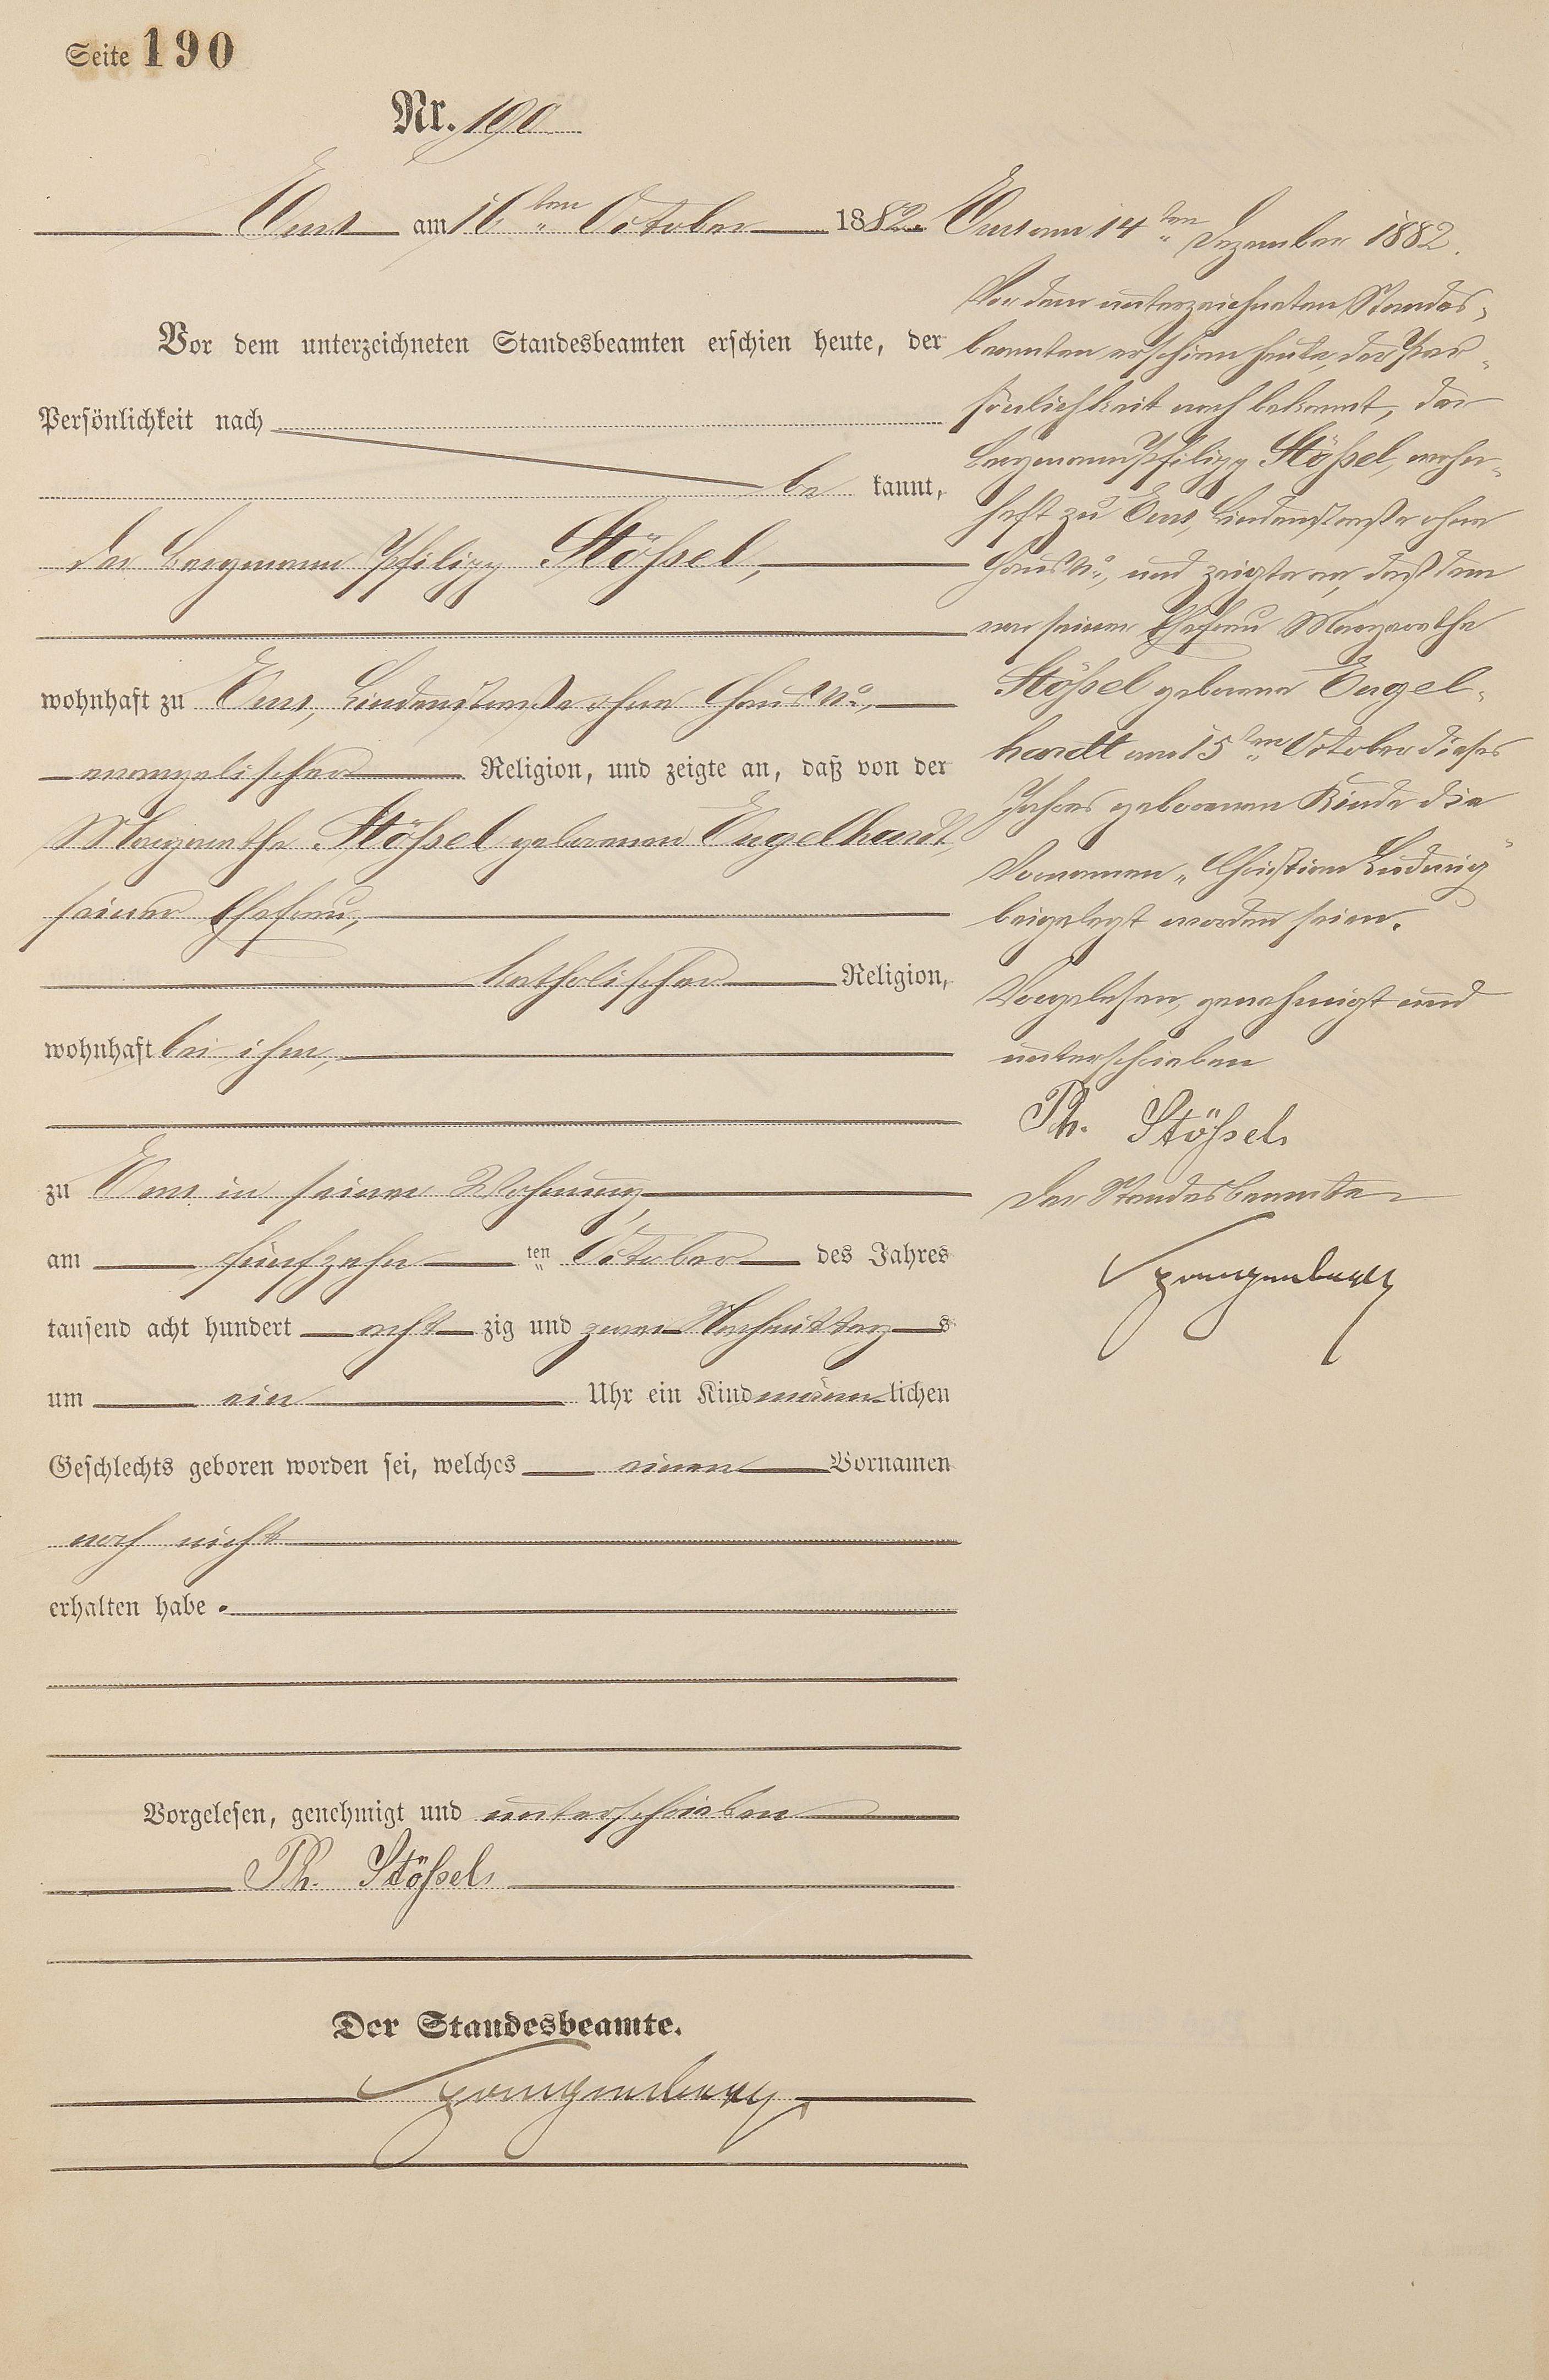 Seite 190
Nr. 190
Ems am 16ten October 1882.
Vor dem unterzeichneten Standesbeamten erschien heute, der
Persönlichkeit nach
be kannt,
der Bergmann Philipp Stößel,
wohnhaft zu Ems, Lindenstraße ohne Haus No,
evangelischer Religion, und zeigte an, daß von der
Margarethe Stößel geborenen Engelhardt,
seiner Ehefrau,
katholischer Religion,
wohnhaft bei ihm,
zu Ems in seiner Wohnung,
am fünfzehn ten October des Jahres
tausend acht hundert acht zig und zwei Nachmittag s
um ein Uhr ein Kind männ lichen
Geschlechts geboren worden sei, welches einen Vornamen
noch nicht
erhalten habe.
Vorgelesen, genehmigt und unterschrieben
Ph. Stößel.
Der Standesbeamte.
Ems am 14ten Dezember 1882.
Vor dem unterzeichneten Standes-
beamten erschien heute, der Per-
sönlichkeit nach bekannt, der
Bergmann Philipp Stößel, wohn-
haft zu Ems, Lindenstraße ohne
Haus No, und zeigte an, daß dem
von seiner Ehefrau Margarethe
Stößel geborene Engel-
hardt am 15ten October dieses
Jahres geborenen Kinde die
Vornamen „Christian Ludwig"
beigelegt worden seien.
Vorgelesen, genehmigt und
unterschrieben
Ph. Stößel.
Der Standesbeamte